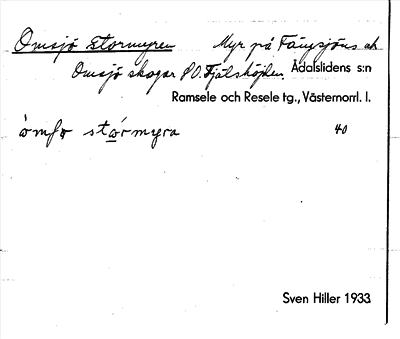 Omsjö Stormyren Myr på Fängsjöns och
Omsjö skogar SO. Fjälshöjden. Ådalslidens s:n
Ramsele och Resele tg., Västernorrl. l.
stórmyra 40
Sven Hiller 1933